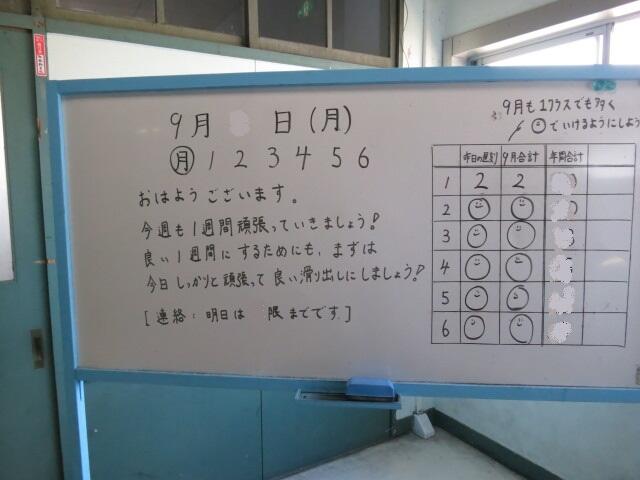 9月 日(月)
月 1 2 3 4 5 6
おはようございます。
今週も1週間頑張っていきましょう!
良い1週間にするためにも、まずは
今日しっかりと頑張って良い滑り出しにしましょう!
[連絡:明日は 限までです]
9月も1クラスでも多く
でいけるようにしよう
昨日の遅刻 9月合計 年間合計
1 2 2
2
3
4
5
6